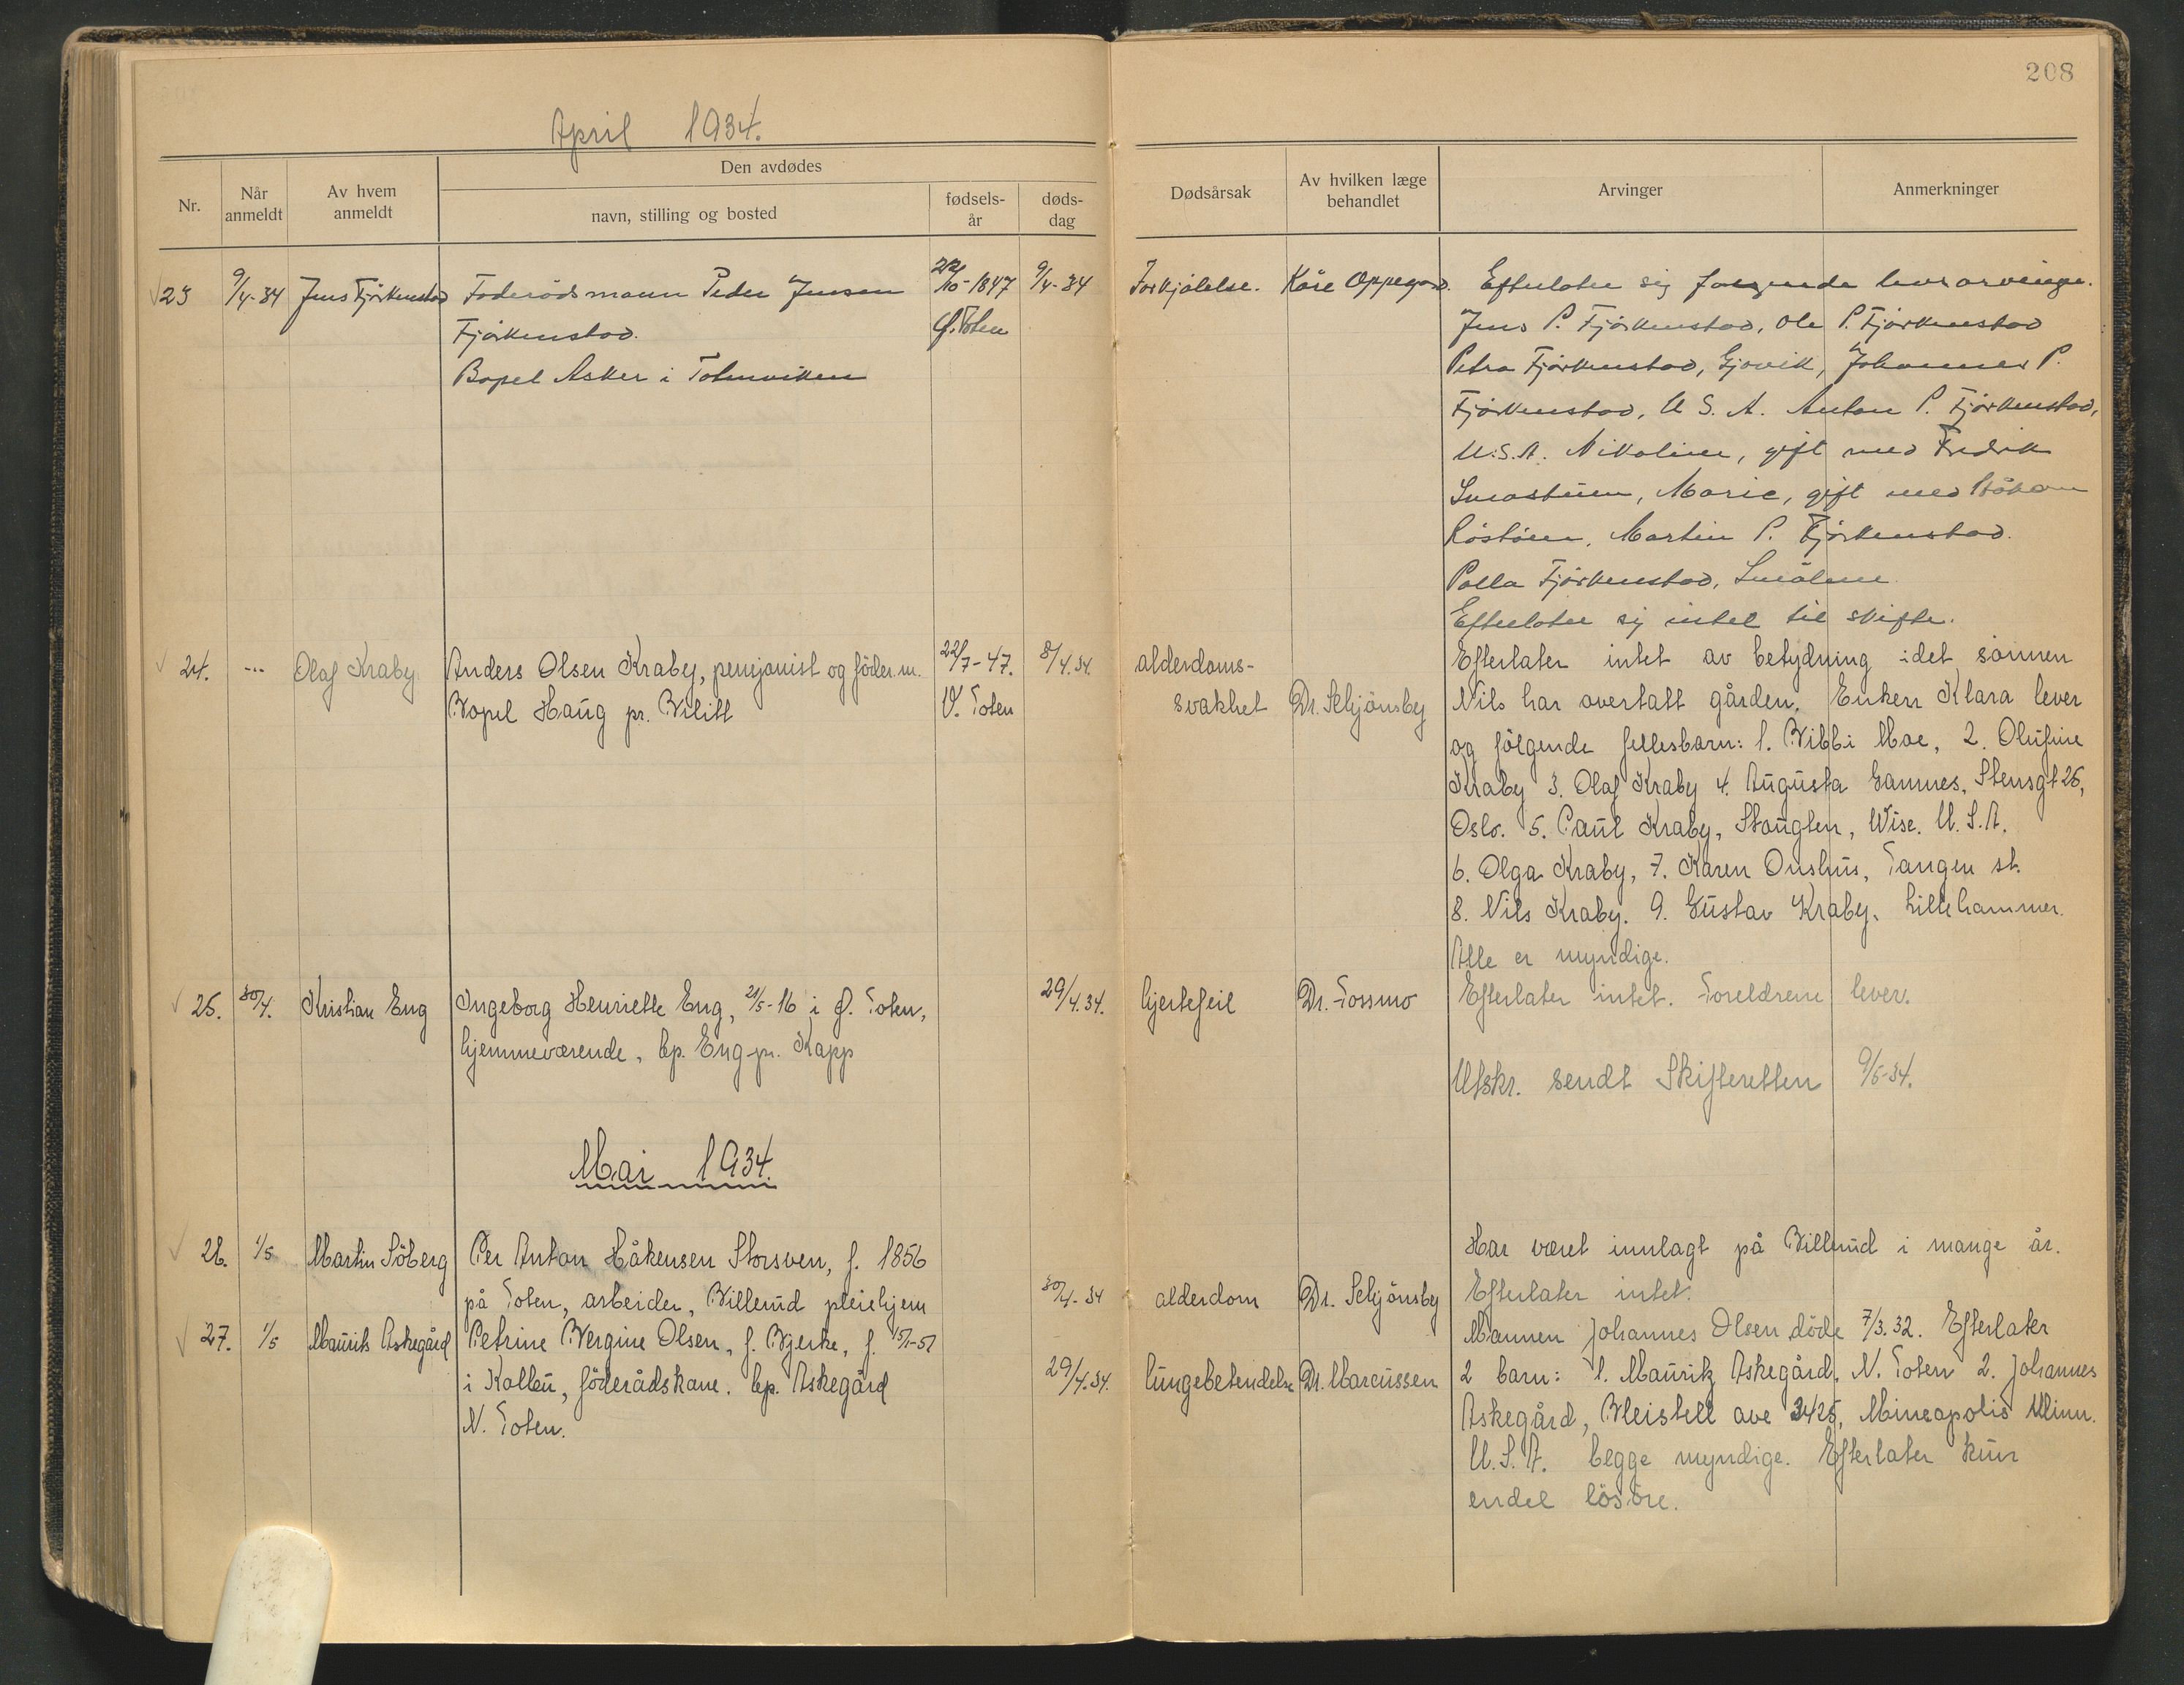 208
April 1934.
Nr.
Når anmeldt
Av hvem anmeldt
Den avdødes
navn, stilling og bosted
fødsels-år
døds-dag
Dødsårsak
Av hvilken læge behandlet
Arvinger
Anmerkninger
23 9/4-34 Jens Fjörkenstad Föderådsmann Peder Jensen 22/10-1847 9/4-34 Forkjölelse. Kåre Oppegård. Efterlater sig følgende livsarvinger.
Fjörkenstad. Ø. Toten Jens P. Fjörkenstad, Ole P. Fjörkenstad
Bopel Asker i Totenviken Petra Fjörkenstad, Gjövik, Johannes P.
Fjörkenstad, U.S.A. Anton P. Fjörkenstad,
U.S.A. Nikoline, gift med Fredrik
Smästuen, Marie, gift med Håkon
Martin P. Fjörkenstad.
Palla Fjörkenstad,
Efterlater sig intet til skifte.
24. --- Olaf Kraby Anders Olsen Kraby, pensjonist og föder.m. 22/7-47. 8/4.34. alderdoms- Efterlater intet av betydning idet sönnen
Bopel Haug pr. Bilitt V. Toten svakhet Dr. Schjönsby Nils har overtatt gården. Enken Klara lever
og fölgende fellesbarn: 1. Bibbi Moe, 2. Olufine
Kraby 3. Olaf Kraby 4. Augusta Gamnes, Stensgt 26,
Oslo. 5. Paul Kraby, Stougten, Wisc. U.S.A.
6. Olga Kraby, 7. Karen Onshus, Tangen st.
8. Nils Kraby. 9. Gustav Kraby, Lillehammer.
Alle er myndige.
25. 30/4. Kristian Eng Ingeborg Henriette Eng, 21/5-16 i Ø. Toten, 29/4.34. hjertefeil Dr. Fossmo Efterlater intet. Foreldrene lever.
hjemmeværende, bp. Eng pr. Kapp
Utskr. sendt Skifteretten 9/5-34.
Mai 1934.
26. 1/5 Martin Söberg Per Anton Håkensen Storsven, f. 1856 Har været innlagt på Billerud i mange år.
på Toten, arbeider, Billerud pleiehjem 30/4-34 alderdom Dr. Schjönsby Efterlater intet.
27. 1/5 Maurits Askegård Petrine Bergine Olsen, f. Bjerke, f. 15/1-51 Mannen Johannes Olsen döde 7/3.32. Efterlater
i Kolbu, föderådskone. bp. Askegård 29/4.34. lungebetendelse Dr. Marcussen 2 barn: 1. Mauritz Askegård, N. Toten 2. Johannes
N. Toten. Askegård, Bleistell ave 3425, Mineapolis Minn.
U.S.A. begge myndige. Efterlater kun
endel lösöre.